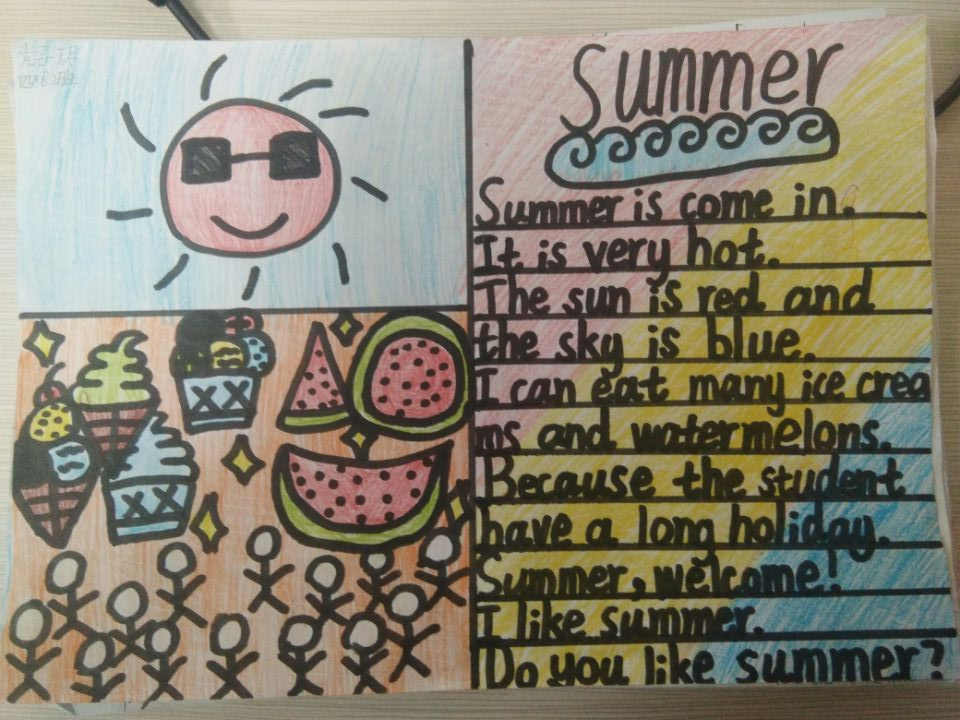 Summer
Summer is come in.
It is very hot.
The sun is red and
the sky is blue.
I can eat many ice crea
ms and watermelons.
Because the student
have a long holiday.
Summer, welcome!
I like summer.
Do you like summer?